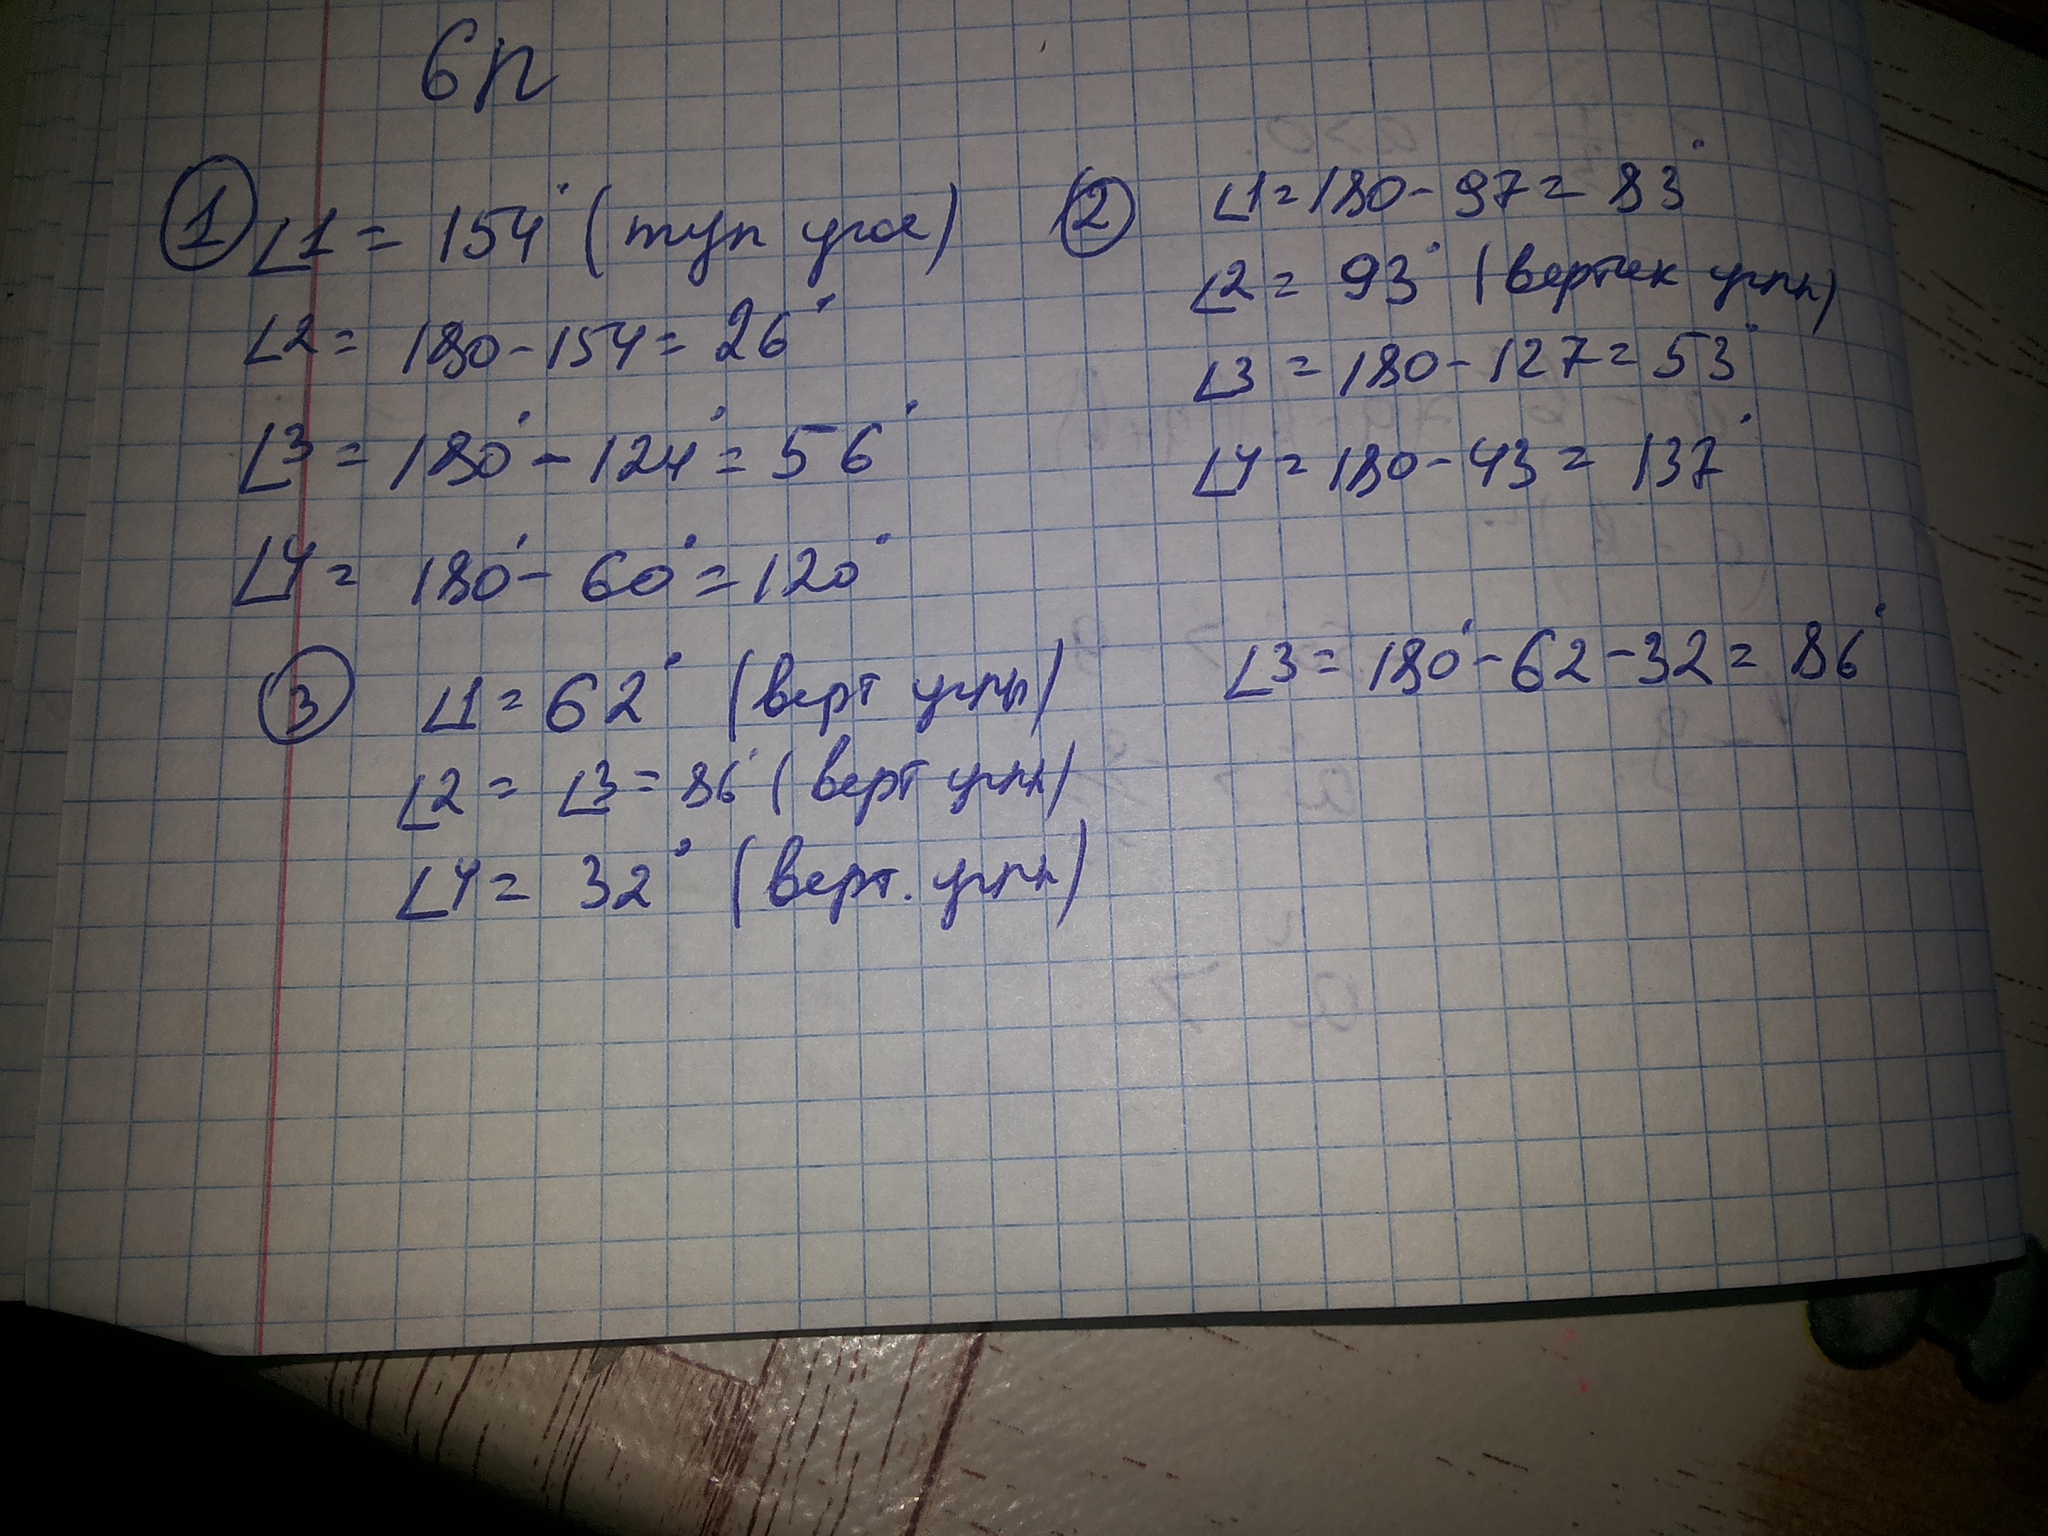 6п
① ∠1 = 154° (туп угол)
∠2 = 180 - 154 = 26°
∠3 = 180° - 124° = 56°
∠4 = 180° - 60° = 120°
② ∠1 = 180 - 97 = 83°
∠2 = 93° (вертик углы)
∠3 = 180 - 127 = 53°
∠4 = 180 - 43 = 137°
③ ∠1 = 62° (верт углы)
∠2 = ∠3 = 86° (верт углы)
∠4 = 32° (верт. углы)
∠3 = 180° - 62 - 32 = 86°